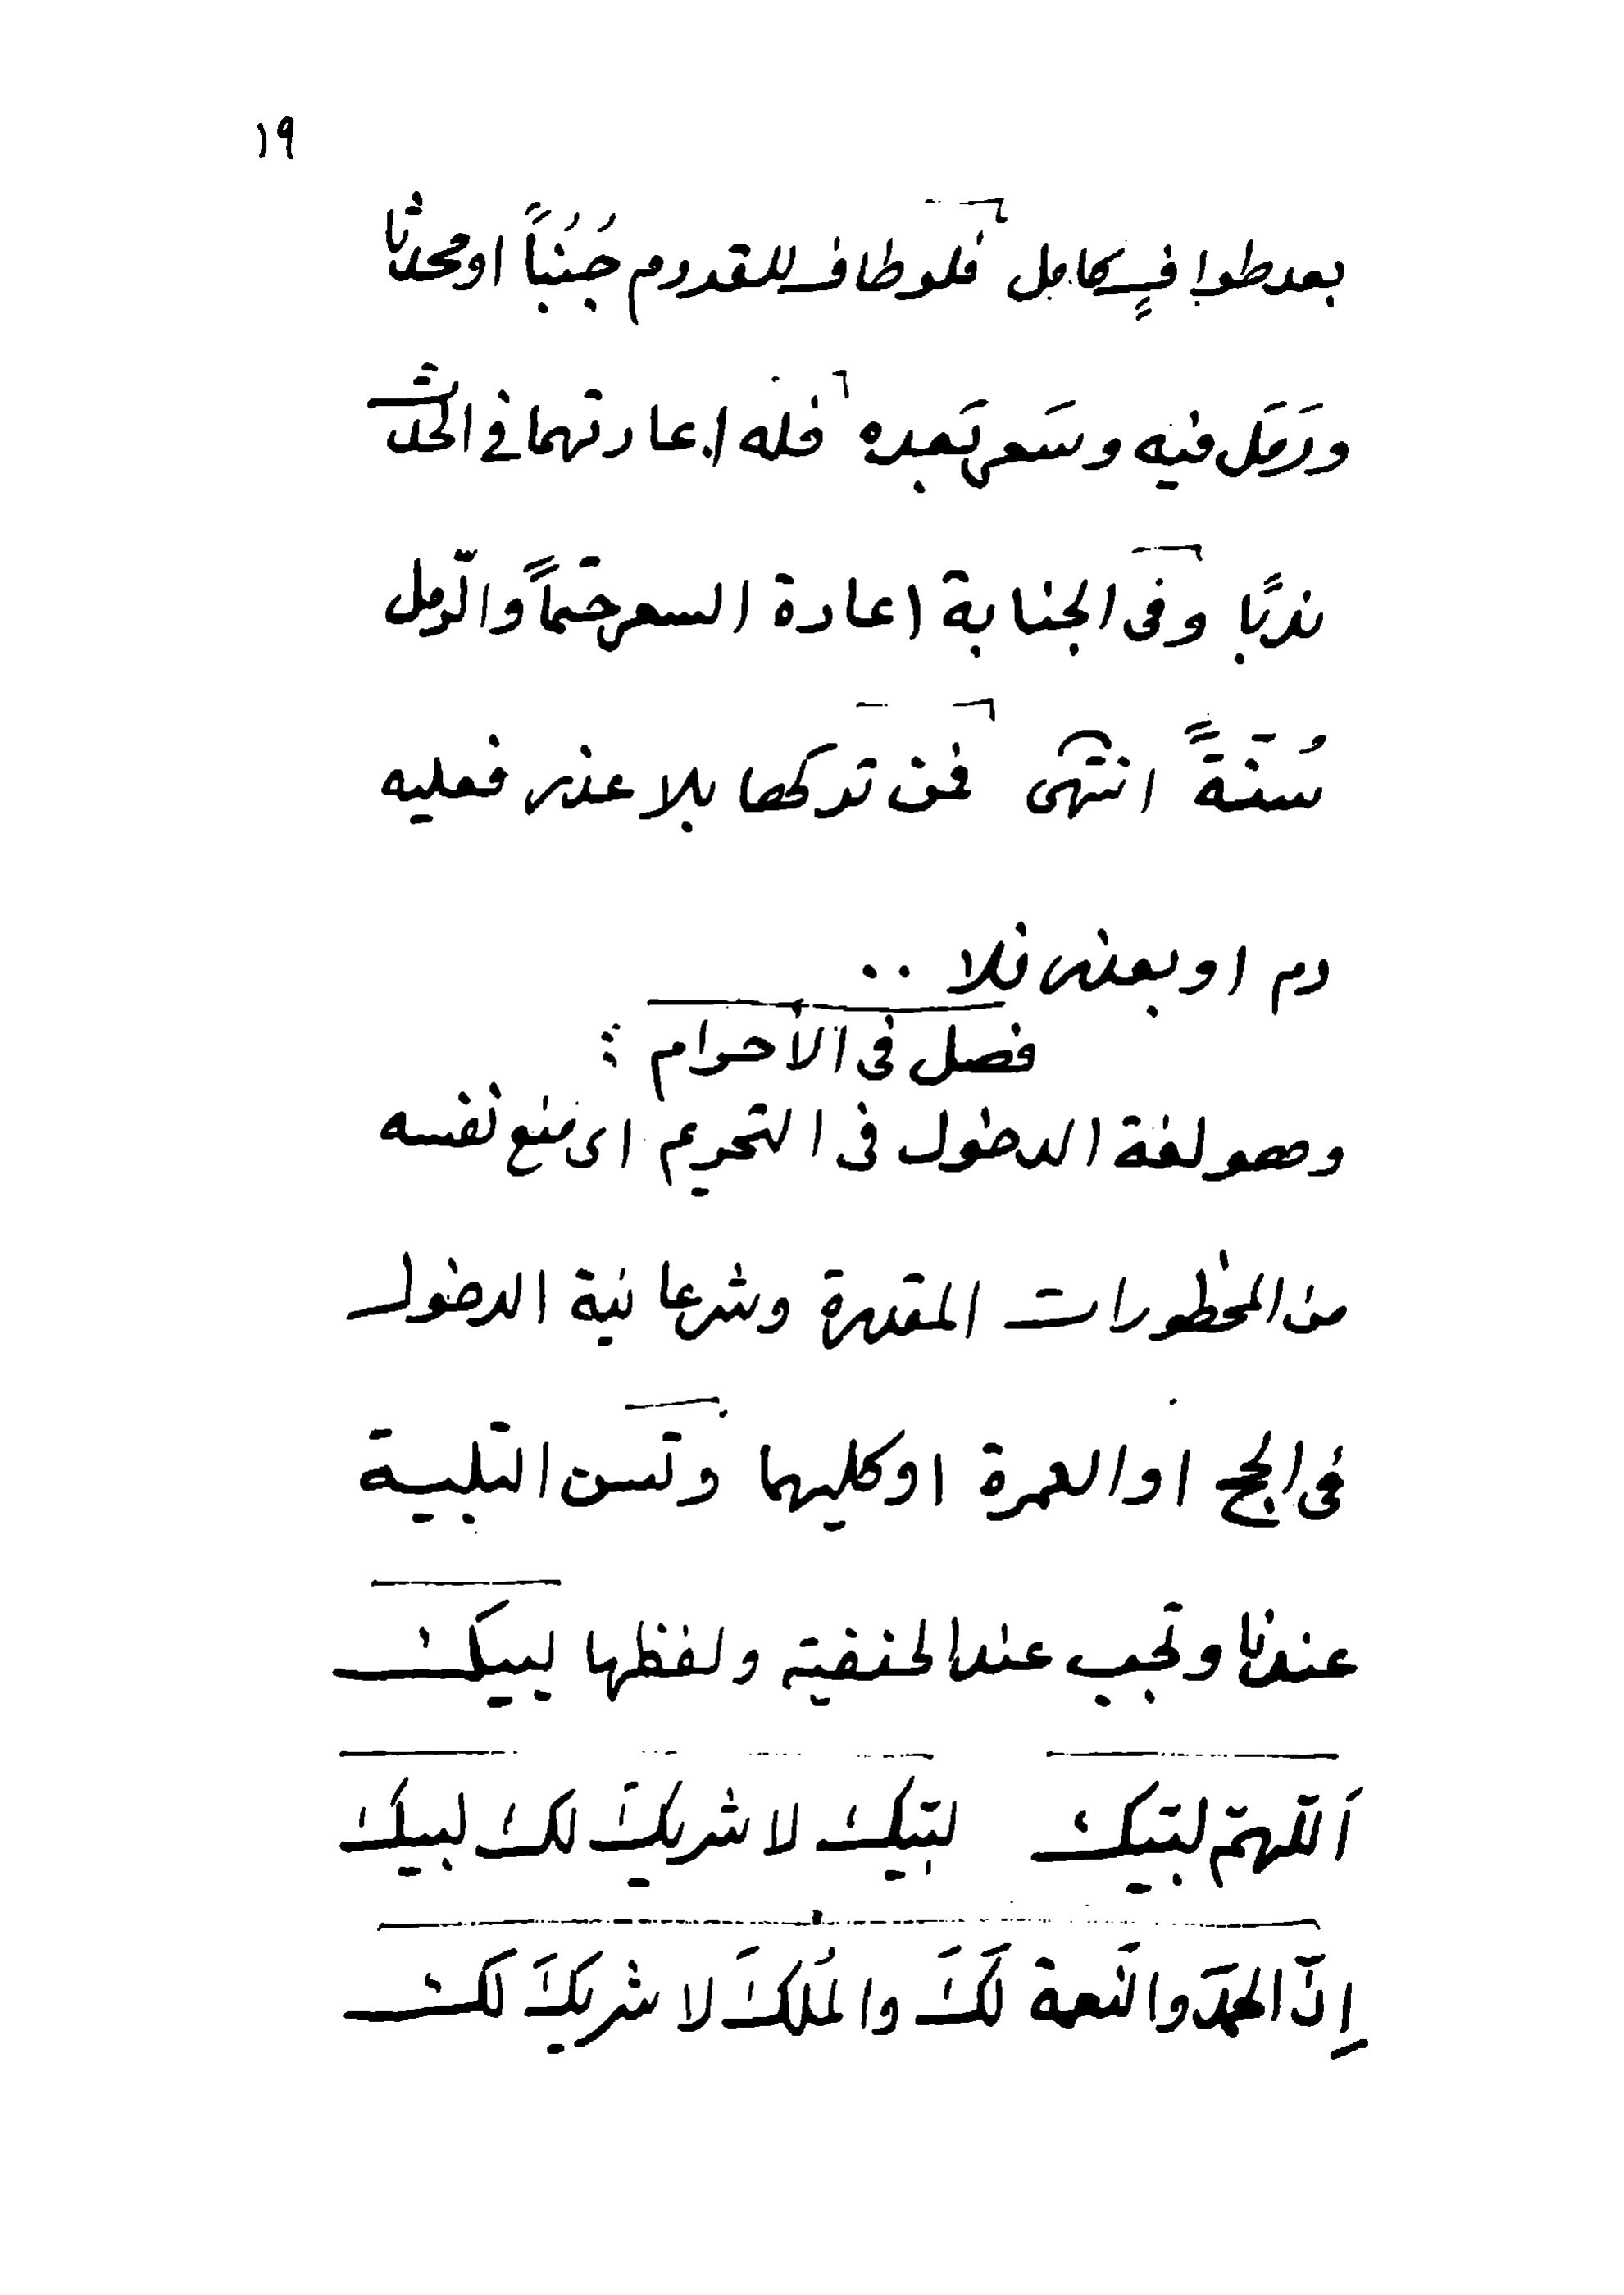 ١٩
بعد طوافٍ كامل فلو طاف للقدوم جُنُباً او محدثا
ورَمَل فيه وسَعى بَعده فله اعادتهما في الحدث
ندبًا وفى الجنابة اعادة السعى حتماً والرّمل
سُنّةً انتهى فمن تركها بلا عذر فعليه
دم او بعذر فلا ..
فصل فى الأحرام :
وهو لغة الدخول فى التحريم اى منع نفسه
من المحظورات المقدرة وشرعا نية الدخول
فى الحج او العمرة او كليهما وتسن التلبية
عندنا وتجب عند الحنفية ولفظها لبيك
اَللّهمّ لبّيك لبّيك لا شريكَ لك لبيك
إِنّ الحمدَ والنَعمة لَكَ والمُلكَ لا شريكَ لك